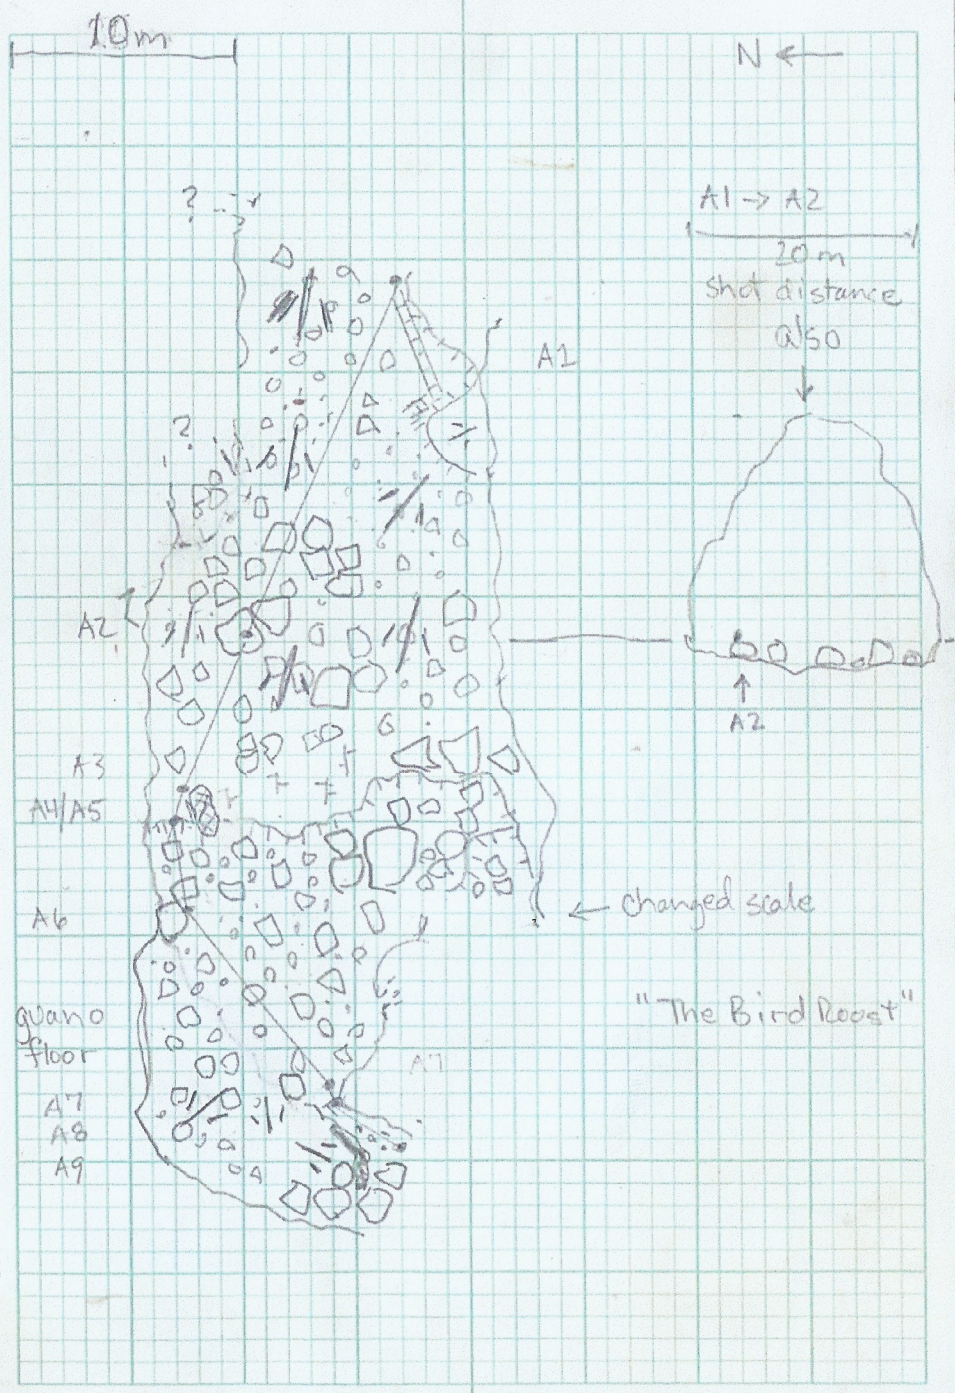 10m
N
?
A1 -> A2
20m
shot distance
also
A1
?
A2
A2
A3
A4/A5
changed scale
A6
"The Bird Roost"
guano
floor
A7
A7
A8
A9